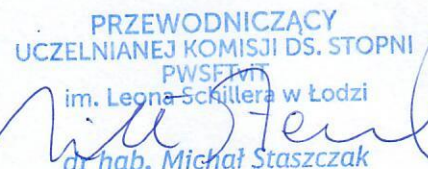 PRZEWODNICZĄCY
UCZELNIANEJ KOMISJI DS. STOPNI
PWSFTviT
im. Leona Schillera w Łodzi
dr hab. Michał Staszczak